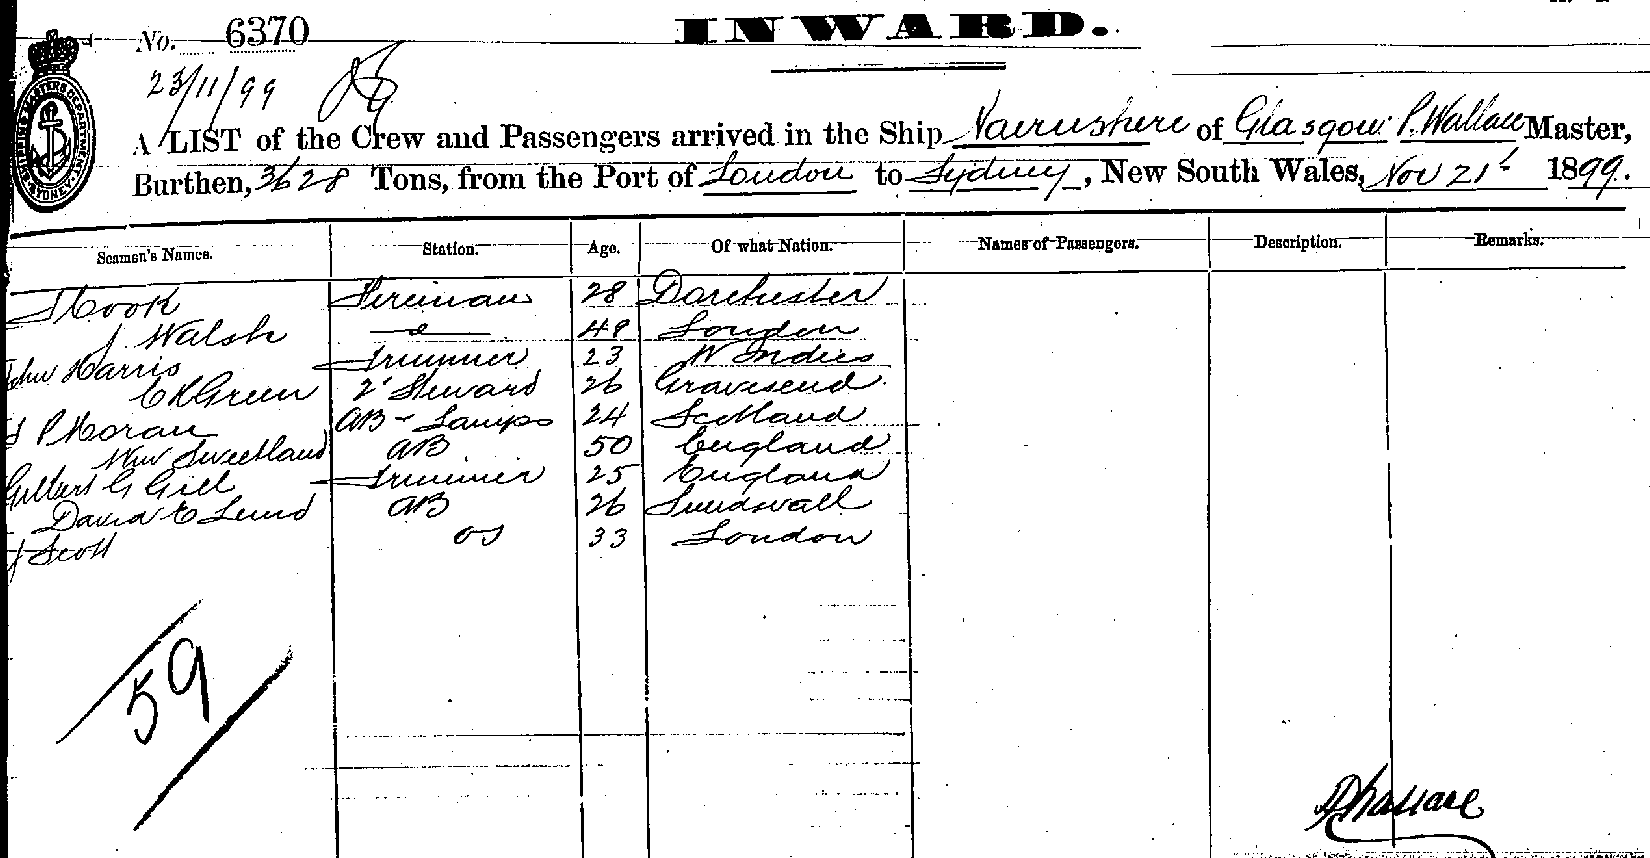 No. 6370
INWARD.
23/11/99
A LIST of the Crew and Passengers arrived in the Ship Nairnshire of Glasgow P. Wallace Master,
Burthen, 3628 Tons, from the Port of London to Sydney, New South Wales, Nov 21st 1899.
Seamen's Names. Station. Age. Of what Nation. Names of Passengers. Description. Remarks.
Cook Fireman 28 Dorchester
J. Walsh 49 London
John Harris Trimmer 23 W Indies
Green 2 Steward 26 Gravesend
P Horan AB - Lamps 24 Scotland
Wm Sweetland AB 50 England
Gilbert G Gill Trimmer 25 England
David E Lund AB 26 Sundswall
J Scott OS 33 London
59
P Wallace